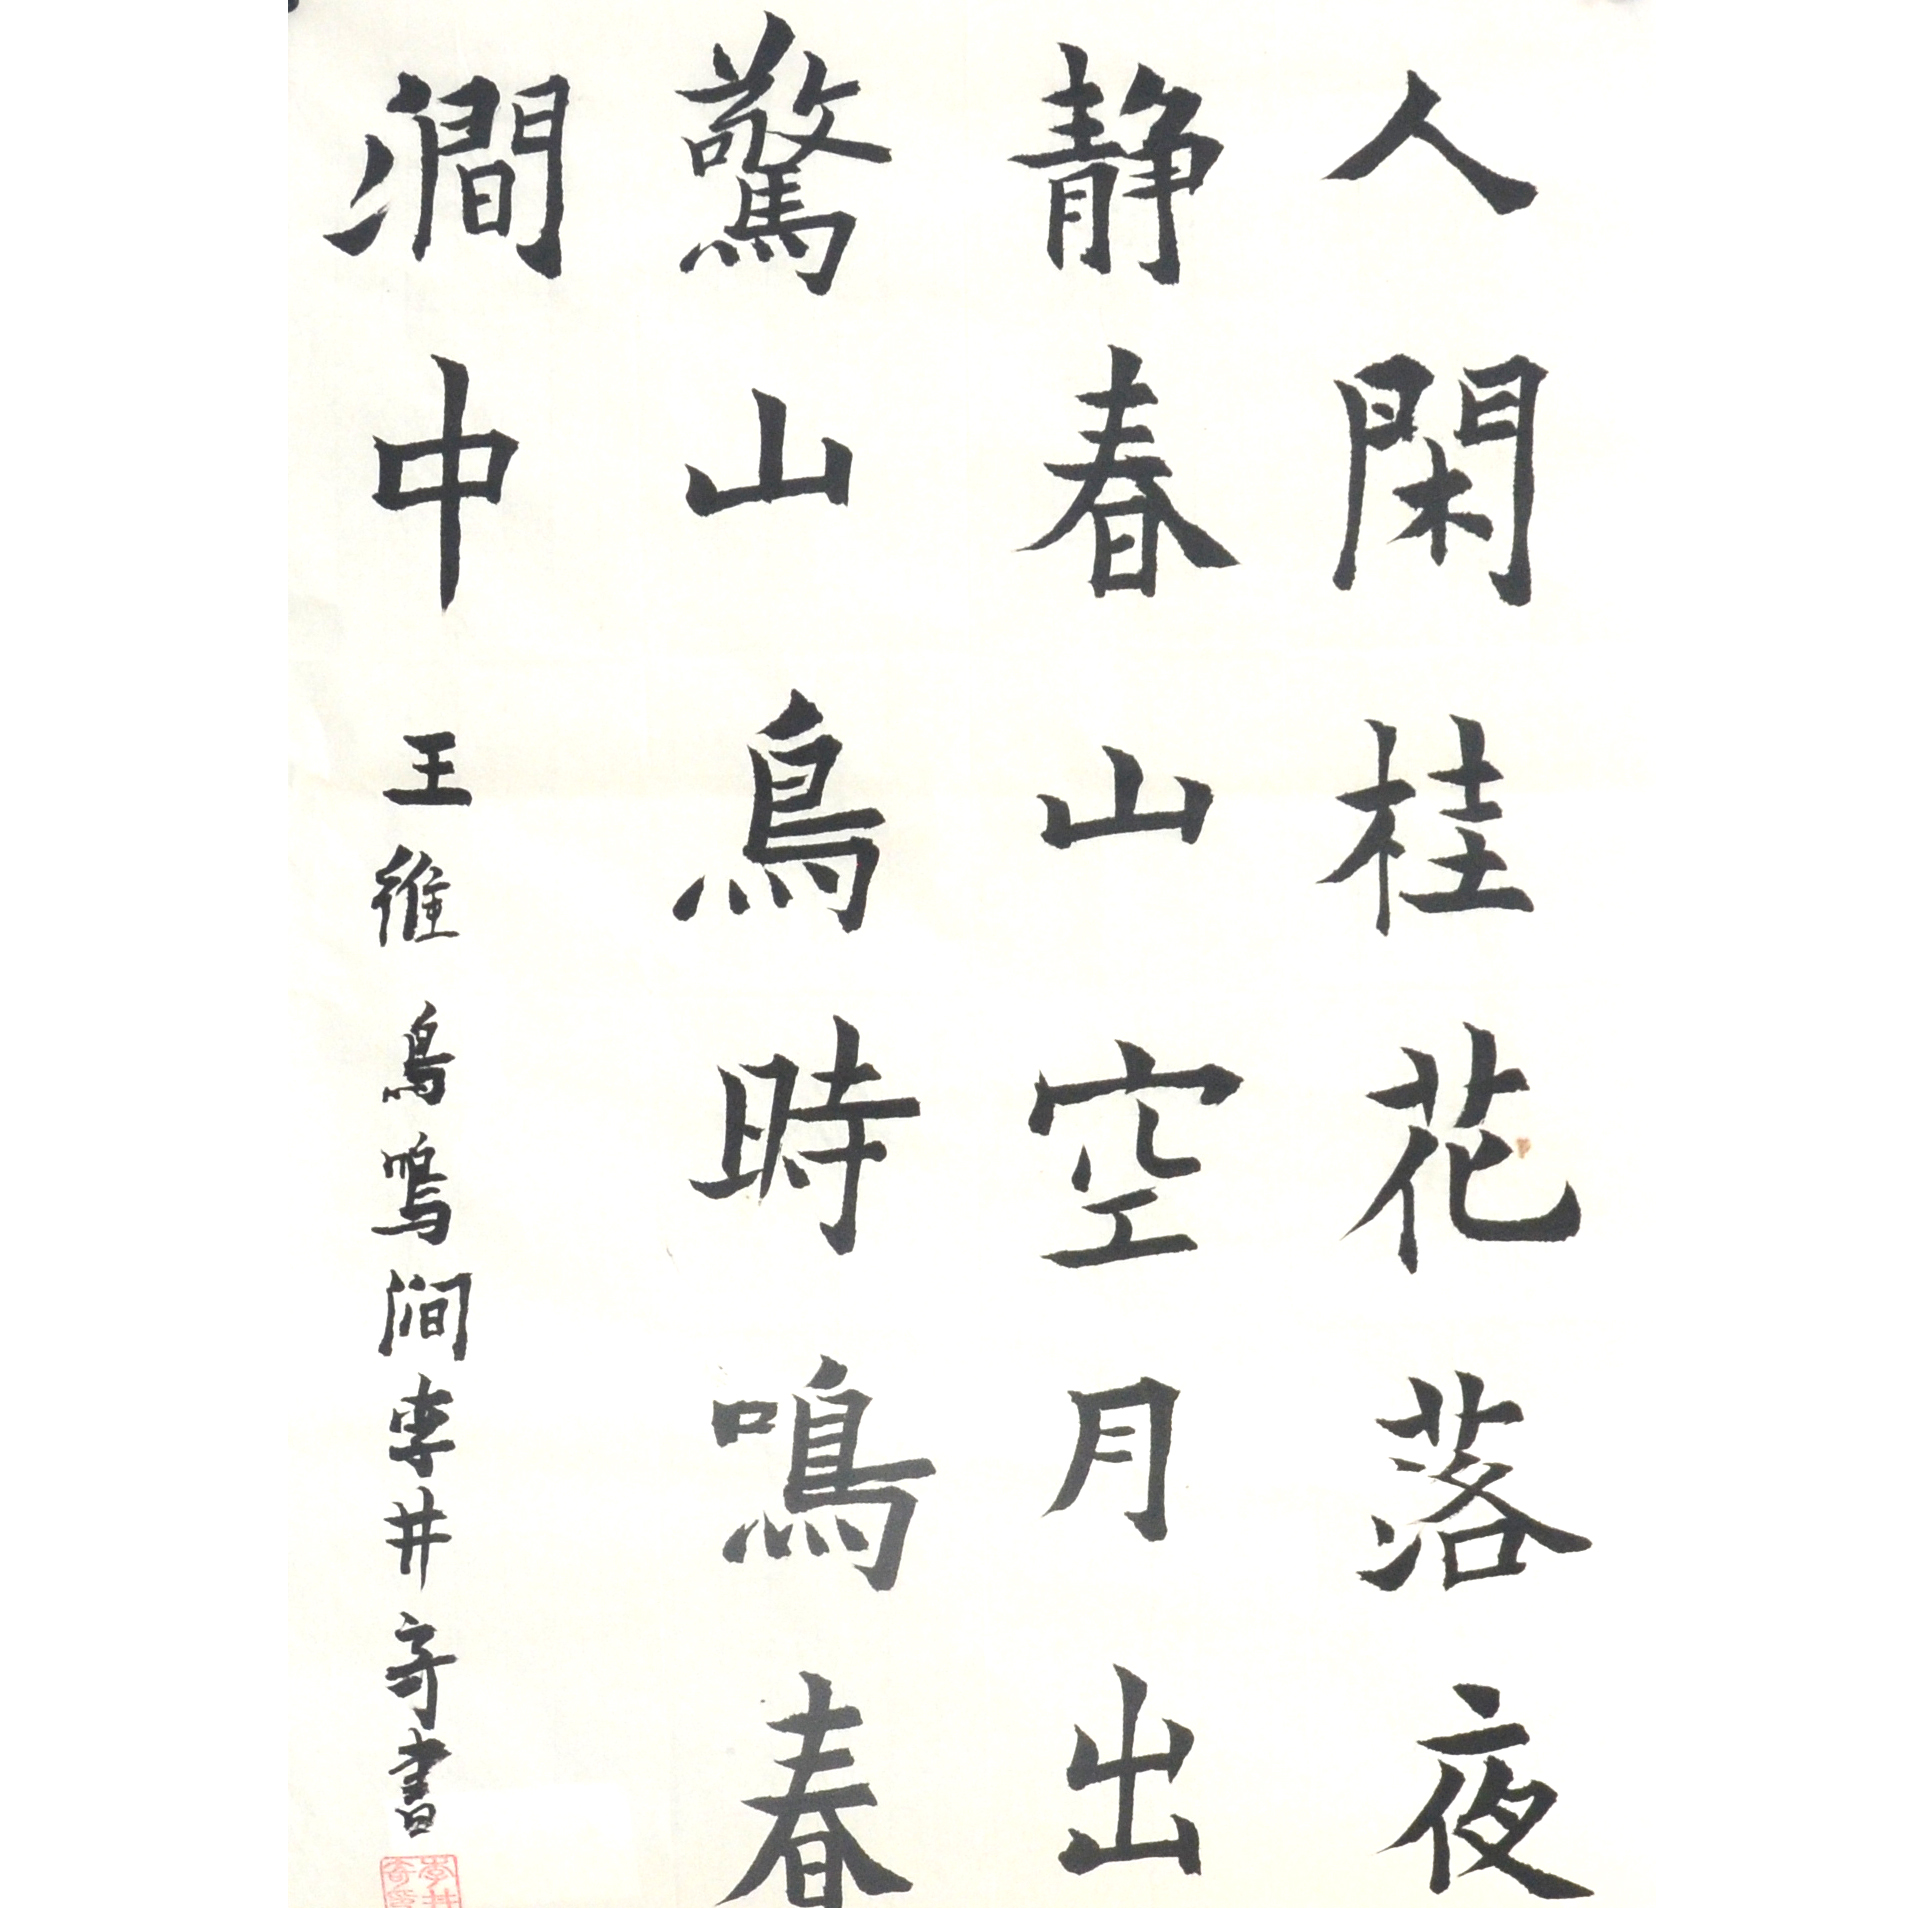 人閑桂花落夜
静春山空月出
驚山鳥時鳴春
澗中 王維 鳥鳴涧 李井奇書
李井奇印